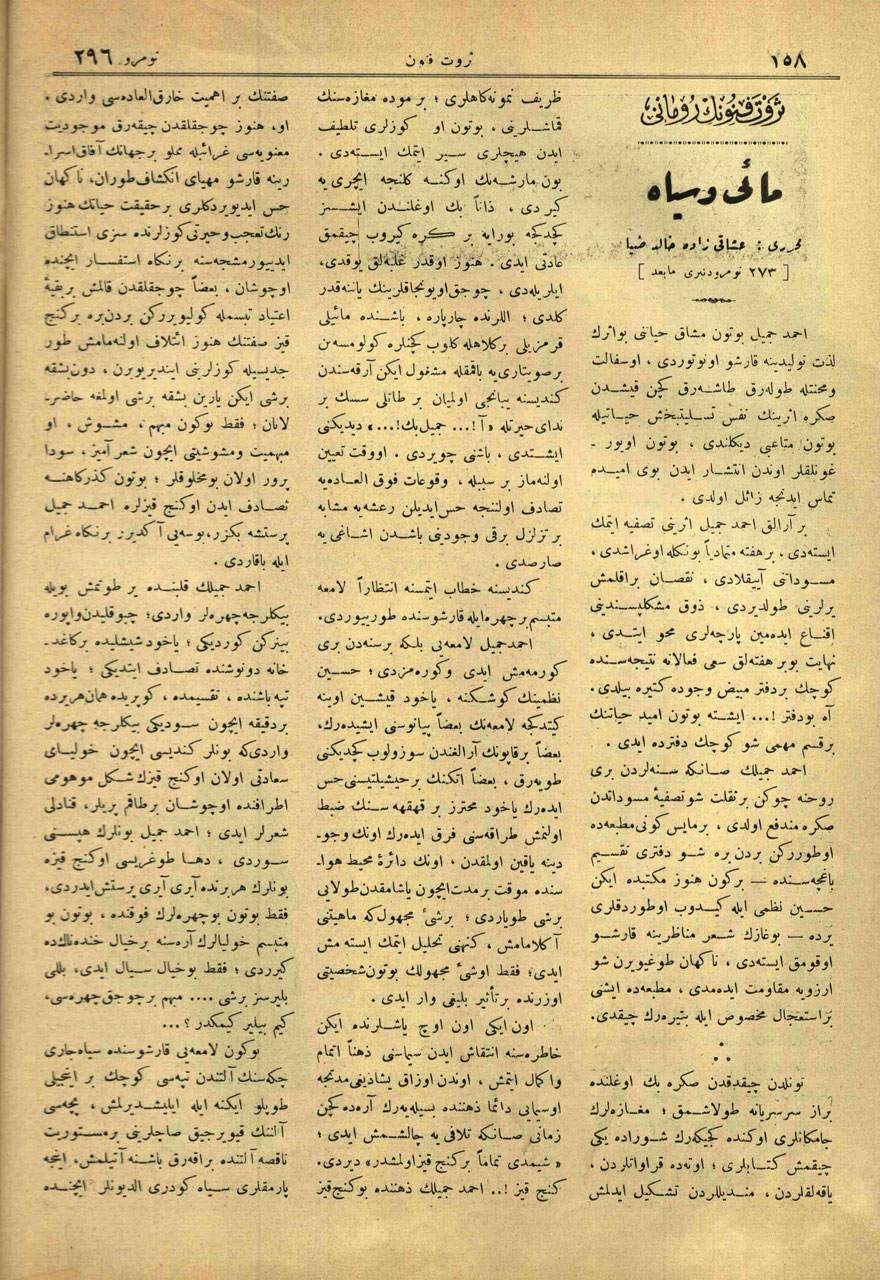 ١٥٨
ثروت فنون
نومرو ٢٩٦
ثروت فنونك رومانى
مائى و سياه
محررى : عشاقى زاده خالد ضيا
[ ٢٧٣ نومرودنبرى مابعد ]
احمد جميل بوتون مشاق حياتنى بواثرك
لذت توليدينه قارشو اونوتوردى ، اوسفالت
ومحنتله طوله‌رق طاشه‌رق كچن قيشدن
صكره اثرينك نفس تسليتبخش حياتيله
بوتون متاعبى ديكلندى ، بوتون اوبور ـ
غونلقلر اوندن انتشار ايدن بوى اميده
تماس ايدنجه زائل اولدى .
بر آرالق احمد جميل اثرينى تصفيه ايتمك
ايسته‌دى . بر هفته متمادياً بونكله اوغراشدى ،
مسوداتى آييقلادى ، نقصان براقلمش
يرلرينى طولديردى ، ذوق مشكلپسندينى
اقناع ايده‌مين پارچه‌لرى محو ايتدى ،
نهايت بوبر هفته‌لق سعى فعالانه نتيجه‌سنده
كوچك بردفتر مبيض وجوده كتيره بيلدى .
آه بودفتر !... ايشته بوتون اميد حياتنك
برقسم مهمى شو كوچك دفترده ايدى .
احمد جميلك صانكه سنه‌لردن برى
روحنه چوكن برثقلت شو تصفيۀ مسوداتدن
صكره مندفع اولدى ، برمايس كونى مطبعه‌ده
اوطورركن بردن بره شو دفترى تقسيم
باغچه‌سنده — بركون هنوز مكتبده ايكن
حسين نظمى ايله كيدوب اوطوردقلرى
يرده — بوغازك شعر مناظرينه قارشو
اوقومق ايسته‌دى ، ناكهان طوغيويرن شو
ارزويه مقاومت ايده‌مدى ، مطبعه‌ده ايشنى
براستعجال مخصوص ايله بتيره‌رك چيقدى .
تونلدن چيقدقدن صكره بك اوغلنده
براز سرسريانه طولاشمق ؛ مغازه‌لرك
جامكانلرى اوكنده كچيكه‌رك شوراده يكى
چيقمش كتابلرى ؛ اوته‌ده قراواتلردن ،
ياقه‌لقلردن ، منديللردن تشكيل ايدلمش
ظريف نمونه‌كاهلرى ؛ بر موده مغازه‌سنك
قماشلرينى ، بوتون او كوزلرى تلطيف
ايدن هيچلرى سير ايتمك ايسته‌دى .
بون مارشه‌نك اوكنه كلنجه ايچرى يه
كيردى ، ذاتاً بك اوغلندن ايشسز
كچدكجه بورايه بر كره كيروب چيقمق
عادتى ايدى . هنوز اوقدر غلبه‌لق يوقدى ،
ايلريله‌دى ، چوجق اويونجاقلرينك ياننه‌قدر
كلدى ؛ اللرنده چارپاره ، باشنده مائيلى
قرمزيلى بركلاهله كلوب كچنلره كولومسه‌ين
برصويتارى‌يه باقمقله مشغول ايكن آرقه‌سندن
كنديسنه يبانجى اولميان بر طاتلى سسك بر
نداى حيرتله « آ !... جميل بك !... » ديديكنى
ايشتدى ، باشنى چويردى . اووقت تعيين
اولنه‌ماز بر سببله ، وقوعات فوق العاده‌يه
تصادف اولننجه حس ايديلن رعشه‌يه مشابه
بر تزلزل برقى وجودينى باشدن اشاغى يه
صارصدى .
كنديسنه خطاب ايتمسنه انتظاراً لامعه
متبسم برچهره ايله قارشوسنده طورييوردى .
احمدجميل لامعه‌يى بلكه برسنه‌دن برى
كورمه‌مش ايدى وكوره‌مزدى ؛ حسين
نظمينك كوشكنه ، ياخود قيشين اوينه
كيتدكجه لامعه‌نك بعضاً پيانوسنى ايشيده‌رك ،
بعضاً برقاپونك آرالغندن سوزولوب كچديكنى
طويه‌رق ، بعضاً اتكنك برخيشيلتيسنى حس
ايده‌رك ياخود محترز بر قهقهه سنك ضبط
اولنمش طراقه‌سنى فرق ايده‌رك اونك وجو-
دينه ياقين اولمقدن ، اونك دائرۀ محيط هوا-
سنده موقت برمدت ايچون ياشامقدن طولايى
برشى طوياردى ؛ برشئ مجهول كه ماهيتنى
آكلامامش ، كنهنى تحليل ايتمك ايسته مش
ايدى ؛ فقط اوشئ مجهولك بوتون شخصيتى
اوزرنده برتأثير بليغى وار ايدى .
اون ايكى اون اوچ ياشلرنده ايكن
خاطره‌سنه انتقاش ايدن سيماسنى ذهناً اتمام
واكمال ايتمش ، اوندن اوزاق يشاديغى مدتجه
اوسيمايى دائما ذهننده بسيله‌يه‌رك آره‌ده كچن
زمانى صانكه تلافى يه چالشمش ايدى ؛
« شيمدى تماماً بركنج قيز اولمشدر » ديردى .
كنج قيز !.. احمد جميلك ذهننده بوكنج قيز
صفتنك بر اهميت خارق‌العاده‌سى واردى .
او ، هنوز چوجقلقدن چيقه‌رق موجوديت
معنويه‌سى غرائبله مملو برجهانك آفاق اسرا-
رينه قارشو مهياى انكشاف طوران ، ناكهان
حس ايديويردكلرى برحقيقت حياتك هنوز
رنك تعجب وحيرتى كوزلرنده سزى استنطاق
ايدييورمشجه‌سنه برنكاه استفسار ايچنده
اوچوشان ، بعضاً چوجقلقدن قالمش بربقيۀ
اعتياد تبسمله كولييوركن بردن بره بركنج
قيز صفتنك هنوز ائتلاف اولنه‌مامش طور
جديسيله كوزلرينى اينديريويرن ، دون بشقه
برشى ايكن يارين بشقه برشى اولمغه حاضر-
لانان ؛ فقط بوكون مبهم ، مشوش ، او
مبهميت ومشوشيتى ايچون شعر آميز ، سودا
پرور اولان بومخلوقلر ؛ بوتون كذركاهنه
تصادف ايدن اوكنج قيزلره احمد جميل
پرستشه بكزر ، بوسه‌يى آكديرر برنكاه غرام
ايله باقاردى .
احمد جميلك قلبنده ير طوتمش بويله
بيكلرجه چهره‌لر واردى ؛ چبوقليدن واپوره
بينركن كورديكى ؛ ياخود شيشليده بركاغد-
خانه دونوشنده تصادف ايتديكى ؛ ياخود
تپه باشنده ، تقسيمده ، كوپريده همان هر يرده
بردقيقه ايچون سوديكى بيكلرجه چهره‌لر
واردى كه بونلر كنديسى ايچون خولياى
سعادتى اولان اوكنج قيزك شكل موهومى
اطرافنده اوچوشان برطاقم پريلر ، قنادلى
شعرلر ايدى ؛ احمد جميل بونلرك هپسنى
سوردى ، دها طوغريسى اوكنج قيزه
بونلرك هر برنده آيرى آيرى پرستش ايدردى ،
فقط بوتون بوچهره‌لرك فوقنده ، بوتون بو
متبسم خوليالرك آره‌سنه برخيال خنده‌ناك ده
كيرردى ؛ فقط بوخيال سيال ايدى ، بللى
بليرسز برشى .... مبهم بر چوجق چهره‌سى ،
كيم بيلير كيمكدر ؟...
بوكون لامعه‌يى قارشوسنده سياه چارى
چكه‌سنك آلتندن تپه‌سى كوچك بر انجيلى
طوپلو ايكنه ايله ايليشديرلمش ، پچه‌سى
آلننك قيويرجيق صاچلرينى برمستوريت
ناقصه آلتنده براقه‌رق باشنه آتيلمش ، اينجه
پارمقلرى سياه كودرى الديونلر ايچنده